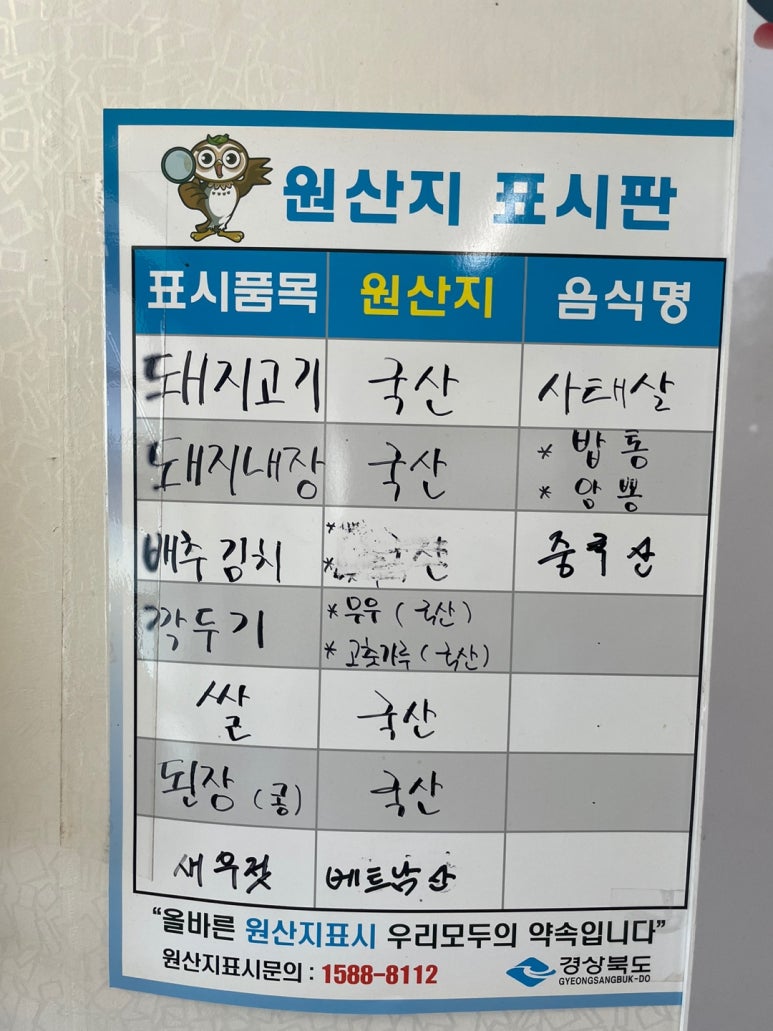 원산지 표시판
표시품목 원산지 음식명
돼지고기 국산 사태살
돼지내장 국산 * 밥통
* 암뽕
배추김치 국산 중국산
깍두기 * 무우 (국산)
* 고춧가루 (국산)
쌀 국산
된장 (콩) 국산
새우젓 베트남산
"올바른 원산지표시 우리모두의 약속입니다"
원산지표시문의 : 1588-8112
경상북도
GYEONGSANGBUK-DO